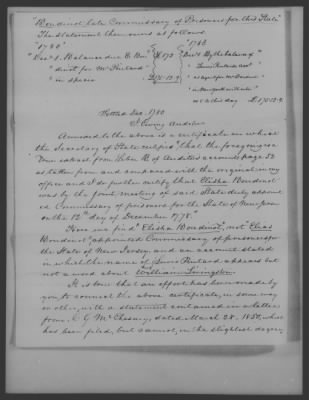 "Boudinot late Commissary of Prisoners for this State"
The statement then runs as follows
"1780
"1780
"Dec 1. Balance due E. Bou
"By the balance
"due for Mr Pintard
"in specie
£170.12.9
"as agent for Mr Boudinot
as this day £170.12.9
Settled Dec. 1780
J. Ewing Auditor
Annexed to the above is a certificate in which
the Secretary of State certifies "that the foregoing is a
True extract from Liber B of the State's accounts page 52
as taken from and compared with the original in my
office and I do further certify that Elisha Boudinot
was by the joint meeting of said State duly appoint
ed Commissary of prisoners for the State of New Jersey
on the 12th day of December 1778."
Here we find Elisha Boudinot, not Elias
Boudinot appointed Commissary of prisoners for
the State of New Jersey and an account stated
in which the name of Lewis Pintard appears but
not a word about William Livingston.
It is true that an effort has been made by
you to connect the above certificate, in some way
or other, with a statement contained in a letter
from C G McChesney, dated March 28. 1850, which
has been filed, but cannot, in the slightest degree,